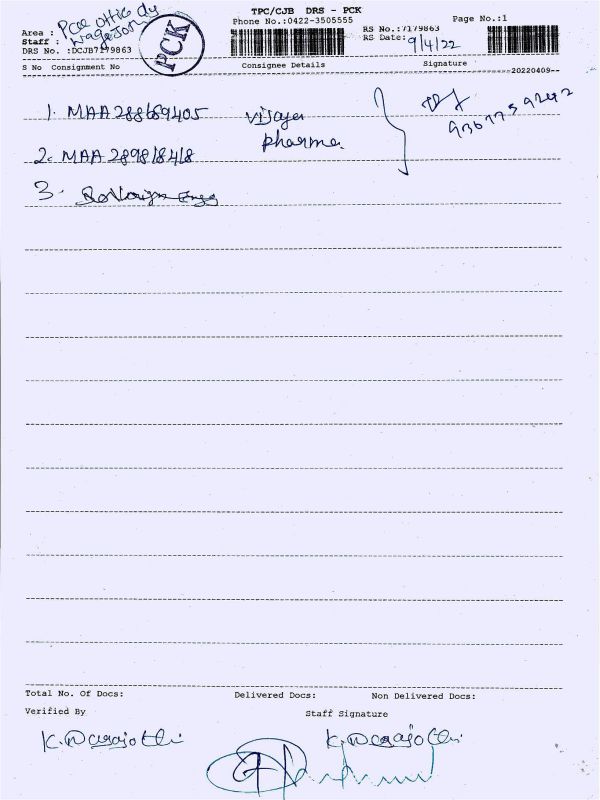 TPC/CJB DRS - PCK
Phone No.:0422-3505555
Page No.:1
Area : Pce Office dy
Staff : Nagajothi
DRS No. :DCJB7179863
PCK
RS No.:7179863
RS Date: 9/4/22
S No Consignment No Consignee Details Signature
20220409
1. MAA288689405 Vijaya
9367759242
Pharma.
2. MAA289818418
3.
Total No. Of Docs: Delivered Docs: Non Delivered Docs:
Verified By Staff Signature